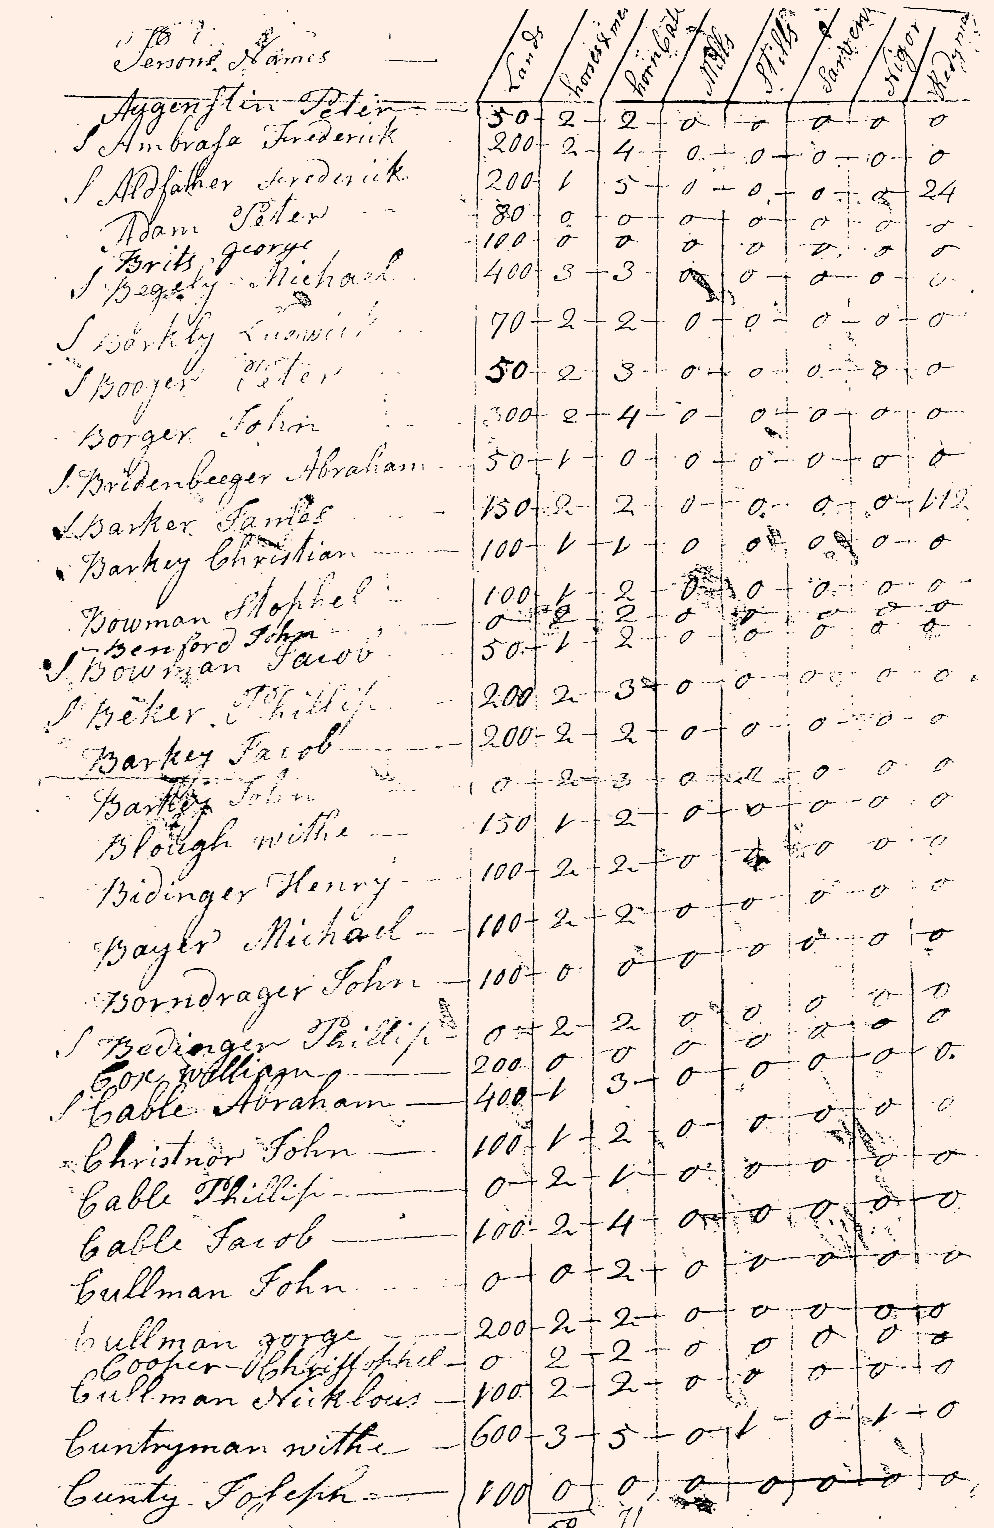 Persons Names — Lands horses & mes horn Catl Mills Stills Sarvent Nigor
Aggenstin Peter — 50 2 2 0 0 0 0 0
S Ambrosa Frederick 200 2 4 0 0 0 0 0
S Aldfather Frederick 200 1 5 0 0 0 0 24
Adam Peter 80 0 0 0 0 0 0 0
Brits george 100 0 0 0 0 0 0 0
S Begely Michael 400 3 3 0 0 0 0 0
S Barkly Ludwick 70 2 2 0 0 0 0 0
S Booger Peter 50 2 3 0 0 0 0 0
Borger John 300 2 4 0 0 0 0 0
S Bridenbeeger Abraham 50 1 0 0 0 0 0 0
S Barker James 150 2 2 0 0 0 0 112
Barkey Christian 100 1 1 0 0 0 0 0
Bowman Stophel 100 1 2 0 0 0 0 0
Benford John 0 2 2 0 0 0 0 0
S Bowman Jacob 50 1 2 0 0 0 0 0
S Beker Phillip 200 2 3 0 0 0 0 0
Barkey Jacob 200 2 2 0 0 0 0 0
Barkey John 0 2 3 0 0 0 0
Blough withe 150 1 2 0 0 0 0 0
Bidinger Henry 100 2 2 0 0 0 0
Bayer Michael 100 2 2 0 0 0 0 0
Borndrager John 100 0 0 0 0 0 0 0
S Bedinger Phillip 0 2 2 0 0 0 0 0
Cox william 200 0 0 0 0 0 0 0
S Cable Abraham 400 1 3 0 0 0 0 0
Christnor John 100 1 2 0 0 0 0 0
Cable Phillip 0 2 1 0 0 0 0 0
Cable Jacob 100 2 4 0 0 0 0 0
Cullman John 0 0 2 0 0 0 0 0
Cullman gorge 200 2 2 0 0 0 0 0
Cooper Christophel 0 2 2 0 0 0 0 0
Cullman Nicklous 100 2 2 0 0 0 0 0
Cuntryman withe 600 3 5 0 1 0 1 0
Cunty Joseph 100 0 0 0 0 0 0 0
50 71